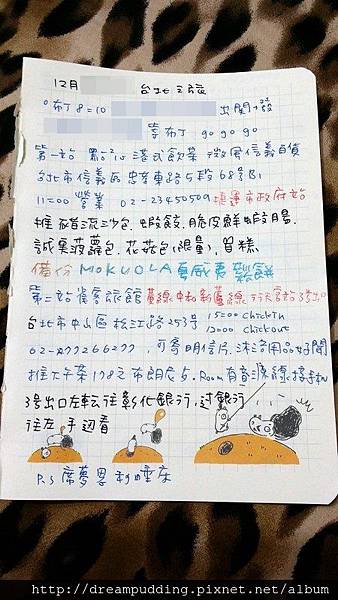 12月 台北之旅
布丁8=10 出開小發
等布丁 go go go
第一站 點點心港式飲茶 微風信義百貨
台北市信義區忠孝東路5段68号B1
11=00 營業 02-23450509 捷運市政府站
推 豬流沙包.蝦餃.脆皮鮮蝦腸.
誠菓菠蘿包.花菇包(限量).冒糕.
備份MOKUOLA夏威夷鬆餅
第二站 旅館 蘆線中和新蘆線 行天宮站3号出口
台北市中山區松江路253号 15=00 chickin
12=00 chickout
02-77266277 ,可寄明信片.沐浴用品好聞
推 下午茶 178之布朗尼.Room有音源線接手机
3号出口左転往彰化銀行,过銀行
往左手边看
P.S 席夢思利睡床
http://dreampudding.pixnet.net/album